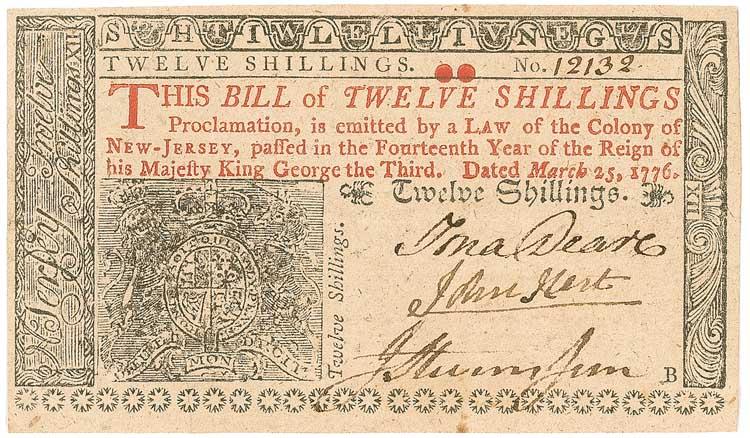 SHTIWLELLIVNEGUS
TWELVE SHILLINGS. No. 12132.
THIS BILL of TWELVE SHILLINGS
Proclamation, is emitted by a LAW of the Colony of
NEW-JERSEY, paſſed in the Fourteenth Year of the Reign of
his Majeſty King George the Third. Dated March 25, 1776.
Twelve Shillings.
John Hart
B
Twelve Shillings.
MON
N Jerſey
Twelve
Shillings XII
XII